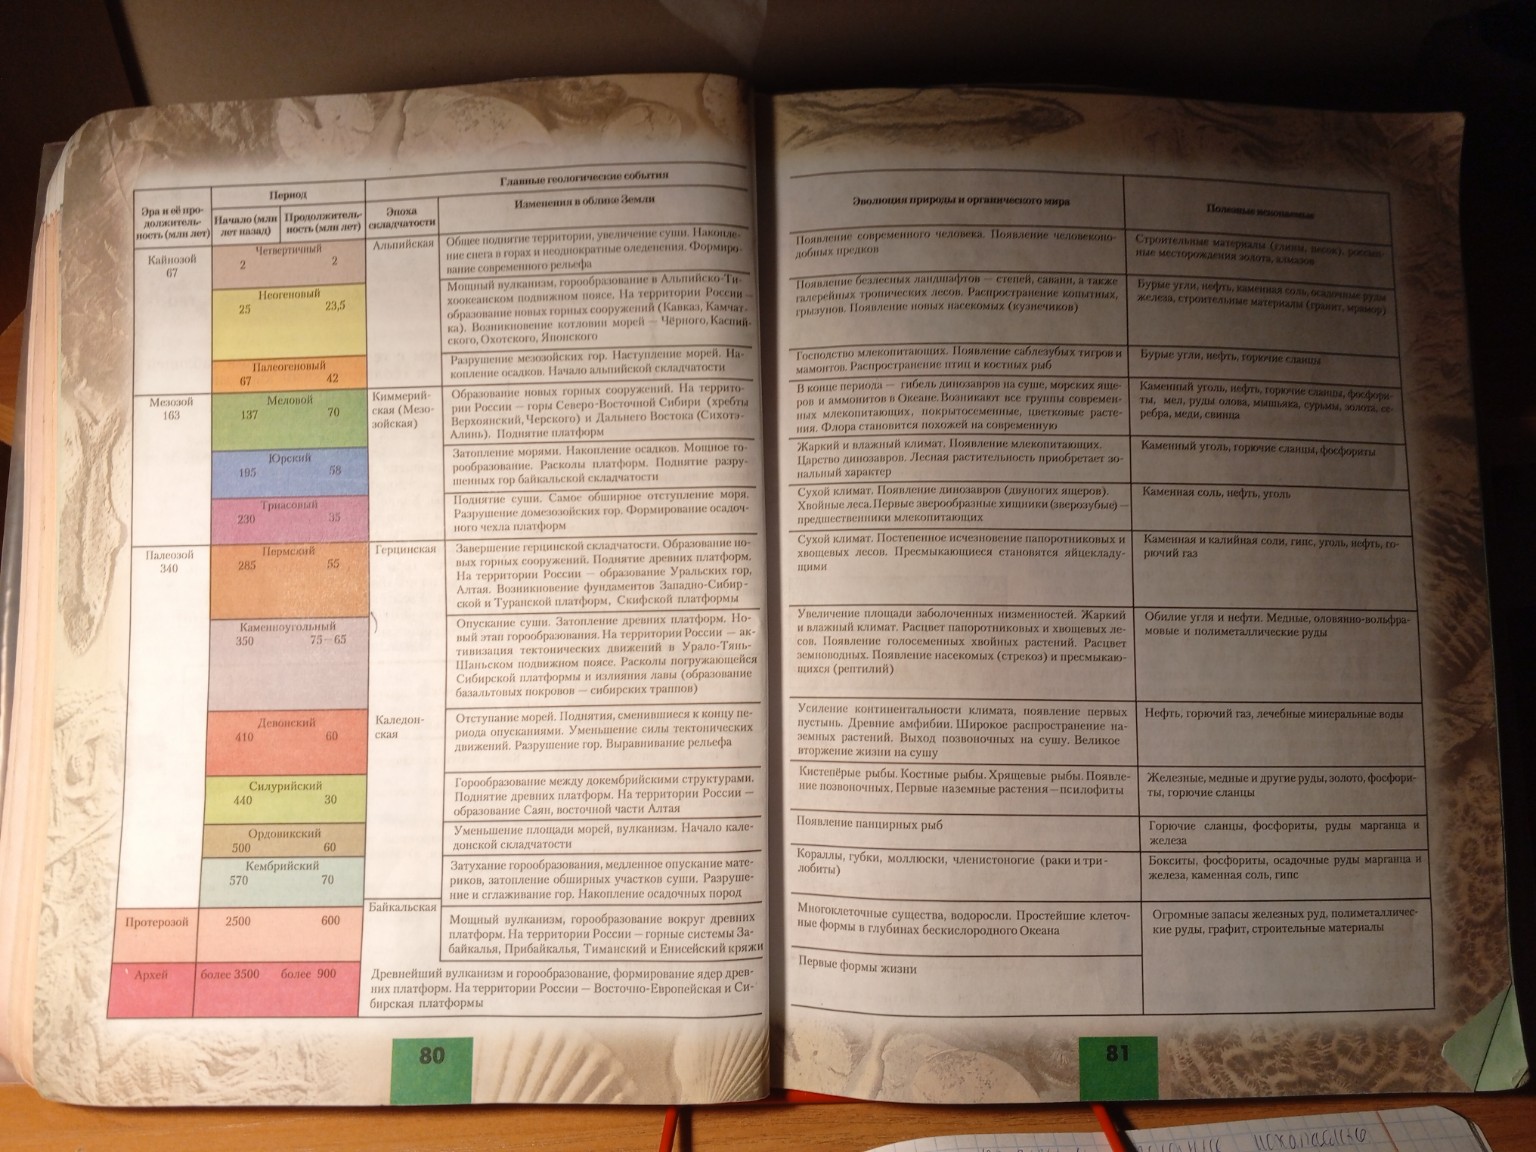 Главные геологические события
Период
Эра и её про-
должитель-
ность (млн лет)
Начало (млн
лет назад)
Продолжитель-
ность (млн лет)
Эпоха
складчатости
Изменения в облике Земли
Кайнозой
67
Четвертичный
2 2
Альпийская
Общее поднятие территории, увеличение суши. Накопле-
ние снега в горах и неоднократные оледенения. Формиро-
вание современного рельефа
Неогеновый
25 23,5
Мощный вулканизм, горообразование в Альпийско-Ти-
хоокеанском подвижном поясе. На территории России –
образование новых горных сооружений (Кавказ, Камчат-
ка). Возникновение котловин морей – Чёрного, Каспий-
ского, Охотского, Японского
Палеогеновый
67 42
Разрушение мезозойских гор. Наступление морей. На-
копление осадков. Начало альпийской складчатости
Мезозой
163
Меловой
137 70
Киммерий-
ская (Мезо-
зойская)
Образование новых горных сооружений. На террито-
рии России – горы Северо-Восточной Сибири (хребты
Верхоянский, Черского) и Дальнего Востока (Сихотэ-
Алинь). Поднятие платформ
Юрский
195 58
Затопление морями. Накопление осадков. Мощное го-
рообразование. Расколы платформ. Поднятие разру-
шенных гор байкальской складчатости
Триасовый
230 35
Поднятие суши. Самое обширное отступление моря.
Разрушение домезозойских гор. Формирование осадоч-
ного чехла платформ
Палеозой
340
Пермский
285 55
Герцинская
Завершение герцинской складчатости. Образование но-
вых горных сооружений. Поднятие древних платформ.
На территории России – образование Уральских гор,
Алтая. Возникновение фундаментов Западно-Сибир-
ской и Туранской платформ, Скифской платформы
Каменноугольный
350 75–65
Опускание суши. Затопление древних платформ. Но-
вый этап горообразования. На территории России – ак-
тивизация тектонических движений в Урало-Тянь-
Шаньском подвижном поясе. Расколы погружающейся
Сибирской платформы и излияния лавы (образование
базальтовых покровов – сибирских траппов)
Девонский
410 60
Каледон-
ская
Отступание морей. Поднятия, сменившиеся к концу пе-
риода опусканиями. Уменьшение силы тектонических
движений. Разрушение гор. Выравнивание рельефа
Силурийский
440 30
Горообразование между докембрийскими структурами.
Поднятие древних платформ. На территории России –
образование Саян, восточной части Алтая
Ордовикский
500 60
Уменьшение площади морей, вулканизм. Начало кале-
донской складчатости
Кембрийский
570 70
Затухание горообразования, медленное опускание мате-
риков, затопление обширных участков суши. Разруше-
ние и сглаживание гор. Накопление осадочных пород
Протерозой
2500 600
Байкальская
Мощный вулканизм, горообразование вокруг древних
платформ. На территории России – горные системы За-
байкалья, Прибайкалья, Тиманский и Енисейский кряжи
Архей
более 3500 более 900
Древнейший вулканизм и горообразование, формирование ядер древ-
них платформ. На территории России – Восточно-Европейская и Си-
бирская платформы
80
Эволюция природы и органического мира
Полезные ископаемые
Появление современного человека. Появление человекопо-
добных предков
Строительные материалы (глины, пески), россып-
ные месторождения золота, алмазов
Появление безлесных ландшафтов – степей, саванн, а также
галерейных тропических лесов. Распространение копытных,
грызунов. Появление новых насекомых (кузнечиков)
Бурые угли, нефть, каменная соль, осадочные руды
железа, строительные материалы (гранит, мрамор)
Господство млекопитающих. Появление саблезубых тигров и
мамонтов. Распространение птиц и костных рыб
Бурые угли, нефть, горючие сланцы
В конце периода – гибель динозавров на суше, морских яще-
ров и аммонитов в Океане. Возникают все группы современ-
ных млекопитающих, покрытосеменные, цветковые расте-
ния. Флора становится похожей на современную
Каменный уголь, нефть, горючие сланцы, фосфори-
ты, мел, руды олова, мышьяка, сурьмы, золота, се-
ребра, меди, свинца
Жаркий и влажный климат. Появление млекопитающих.
Царство динозавров. Лесная растительность приобретает зо-
нальный характер
Каменный уголь, горючие сланцы, фосфориты
Сухой климат. Появление динозавров (двуногих ящеров).
Хвойные леса. Первые зверообразные хищники (зверозубые) –
предшественники млекопитающих
Каменная соль, нефть, уголь
Сухой климат. Постепенное исчезновение папоротниковых и
хвощевых лесов. Пресмыкающиеся становятся яйцекладу-
щими
Каменная и калийная соли, гипс, уголь, нефть, го-
рючий газ
Увеличение площади заболоченных низменностей. Жаркий
и влажный климат. Расцвет папоротниковых и хвощевых ле-
сов. Появление голосеменных хвойных растений. Расцвет
земноводных. Появление насекомых (стрекоз) и пресмыкаю-
щихся (рептилий)
Обилие угля и нефти. Медные, оловянно-вольфра-
мовые и полиметаллические руды
Усиление континентальности климата, появление первых
пустынь. Древние амфибии. Широкое распространение на-
земных растений. Выход позвоночных на сушу. Великое
вторжение жизни на сушу
Нефть, горючий газ, лечебные минеральные воды
Кистепёрые рыбы. Костные рыбы. Хрящевые рыбы. Появле-
ние позвоночных. Первые наземные растения – псилофиты
Железные, медные и другие руды, золото, фосфори-
ты, горючие сланцы
Появление панцирных рыб
Горючие сланцы, фосфориты, руды марганца и
железа
Кораллы, губки, моллюски, членистоногие (раки и три-
лобиты)
Бокситы, фосфориты, осадочные руды марганца и
железа, каменная соль, гипс
Многоклеточные существа, водоросли. Простейшие клеточ-
ные формы в глубинах бескислородного Океана
Огромные запасы железных руд, полиметалличес-
кие руды, графит, строительные материалы
Первые формы жизни
81